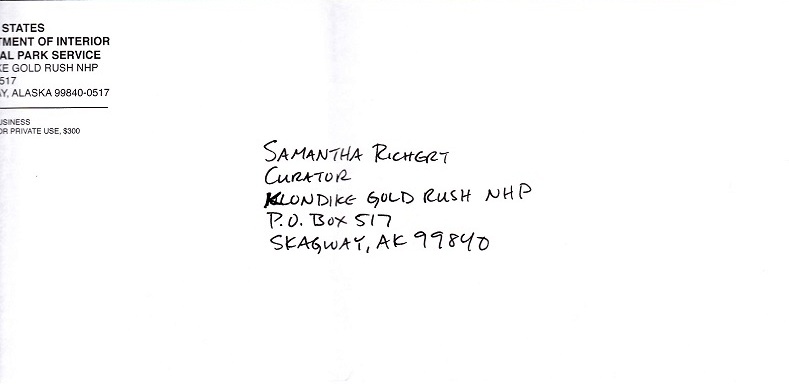 STATES
TMENT OF INTERIOR
AL PARK SERVICE
KE GOLD RUSH NHP
517
Y, ALASKA 99840-0517
USINESS
OR PRIVATE USE, $300
SAMANTHA RICHERT
CURATOR
KLONDIKE GOLD RUSH NHP
P.O. BOX 517
SKAGWAY, AK 99840